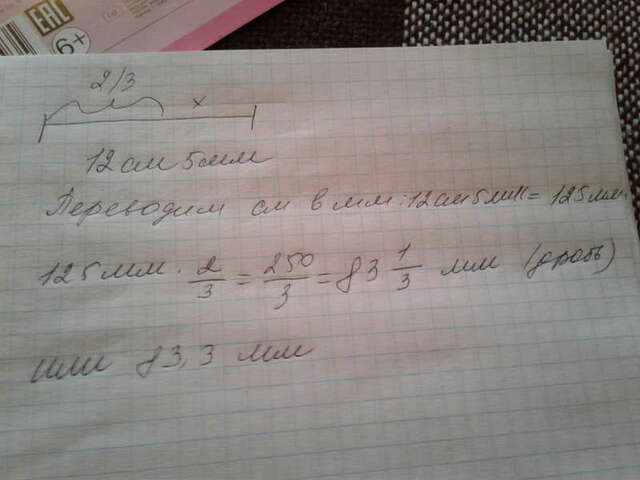 EAC
6+
2/3
x
12 см 5 мм
Переводим см в мм: 12 см 5 мм = 125 мм.
125 мм · 2/3 = 250/3 = 83 1/3 мм (дробь)
или 83,3 мм